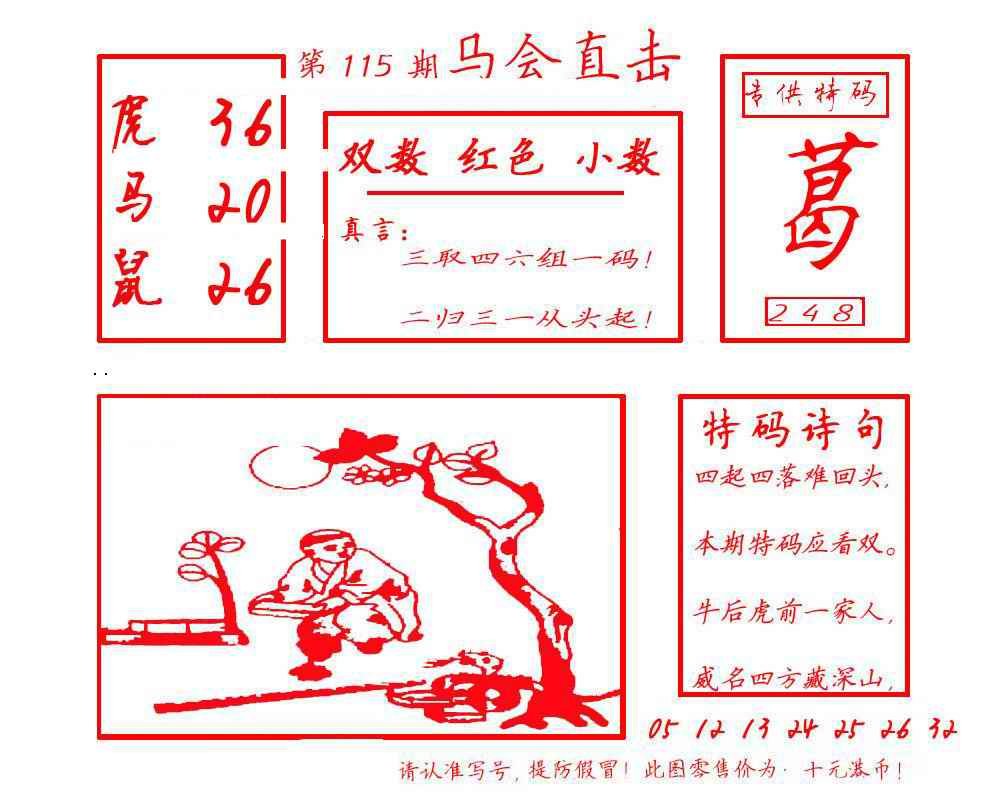 第 115 期 马会直击
虎 36
马 20
鼠 26
双数 红色 小数
真言：
三取四六组一码！
二归三一从头起！
专供特码
葛
248
特码诗句
四起四落难回头，
本期特码应看双。
牛后虎前一家人，
威名四方藏深山，
05 12 13 24 25 26 32
请认准写号，提防假冒！此图零售价为·十元港币！